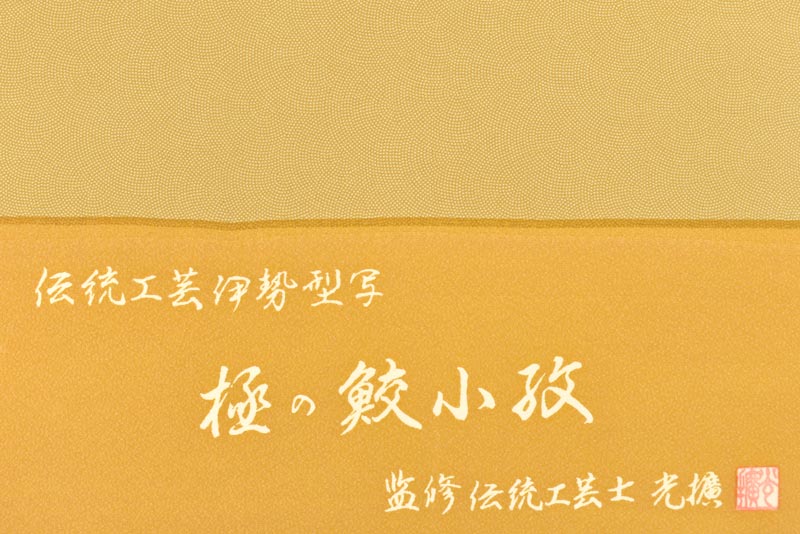 伝統工芸伊勢型写
極の鮫小紋
监修伝統工芸士 光擴